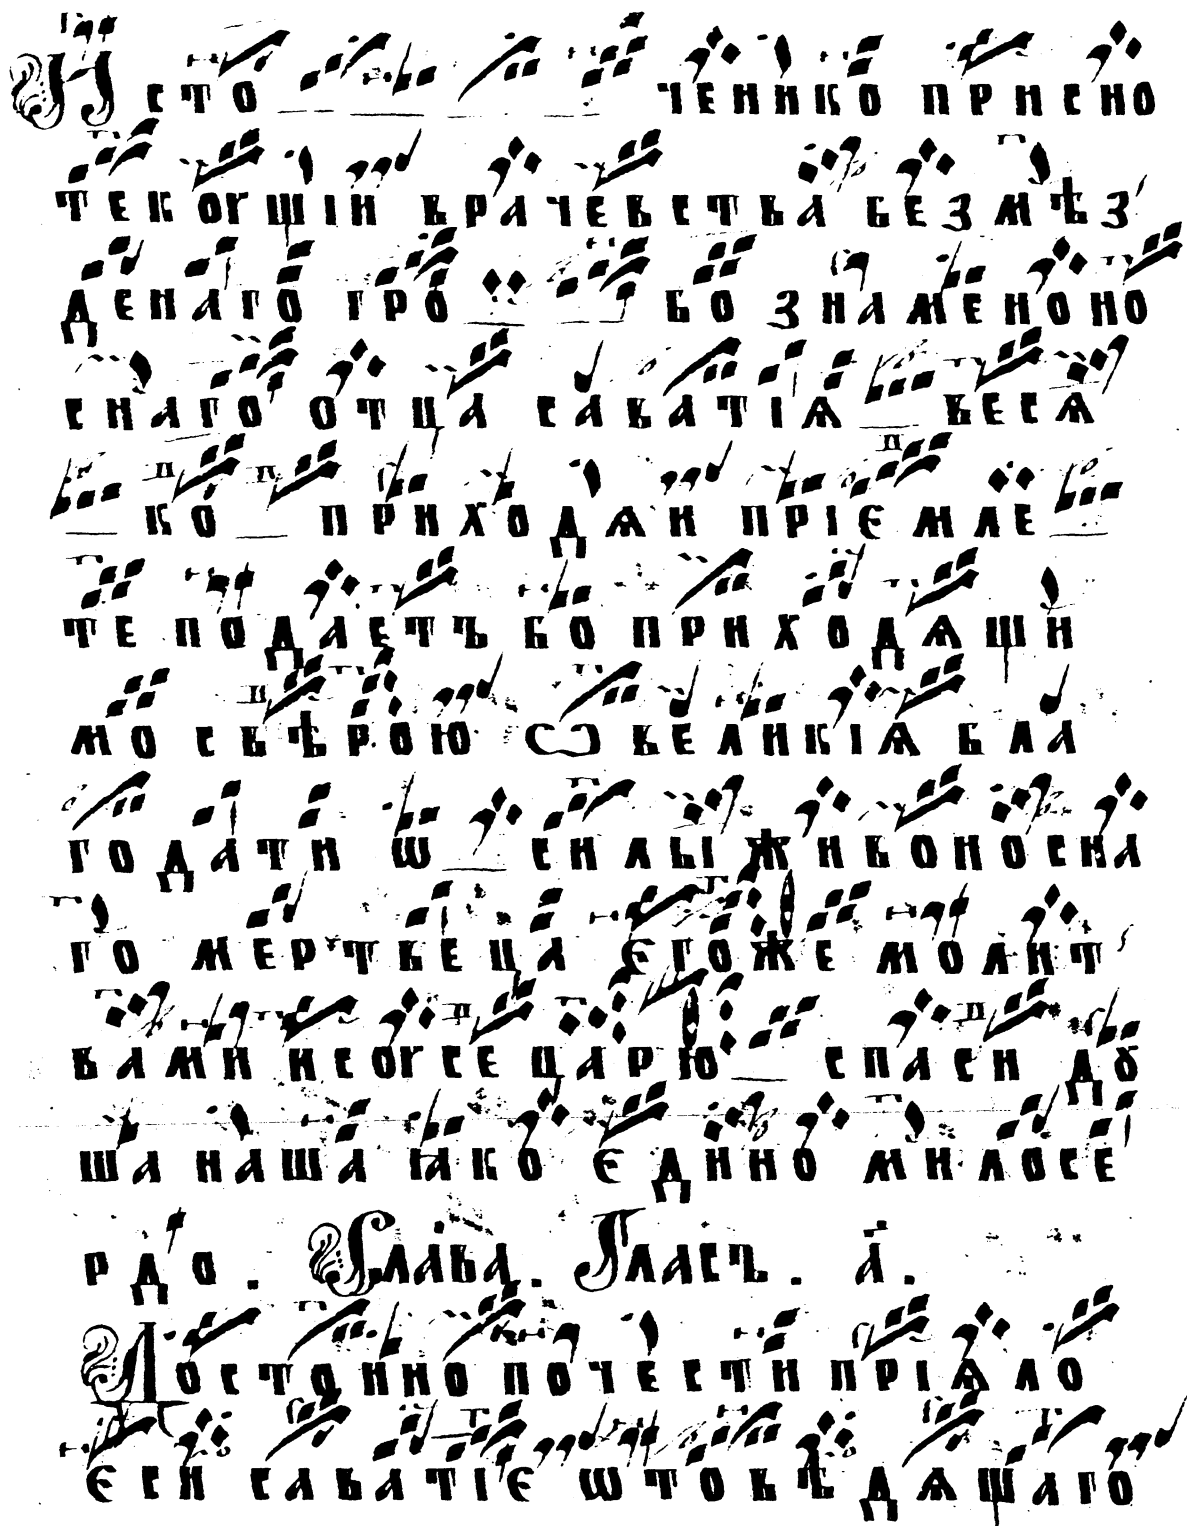 Исто ченико присно
текꙋщїи врачевства безмѣз
денаго гро бо знаменоно
снаго отца саватїѧ весѧ
ко приходѧи прїемле
те подаетъ бо приходѧщи
мо свѣрою ѽ великїѧ бла
годати ѿ силы животоносна
го мертвеца егоже молит
вами исꙋсе царю спаси дꙋ
ша наша ꙗко единo милосе
рдо . Слава . Гласъ . а҃ .
Достоино почести прїѧло
еси саватїе ѿ товѣдѧщаго